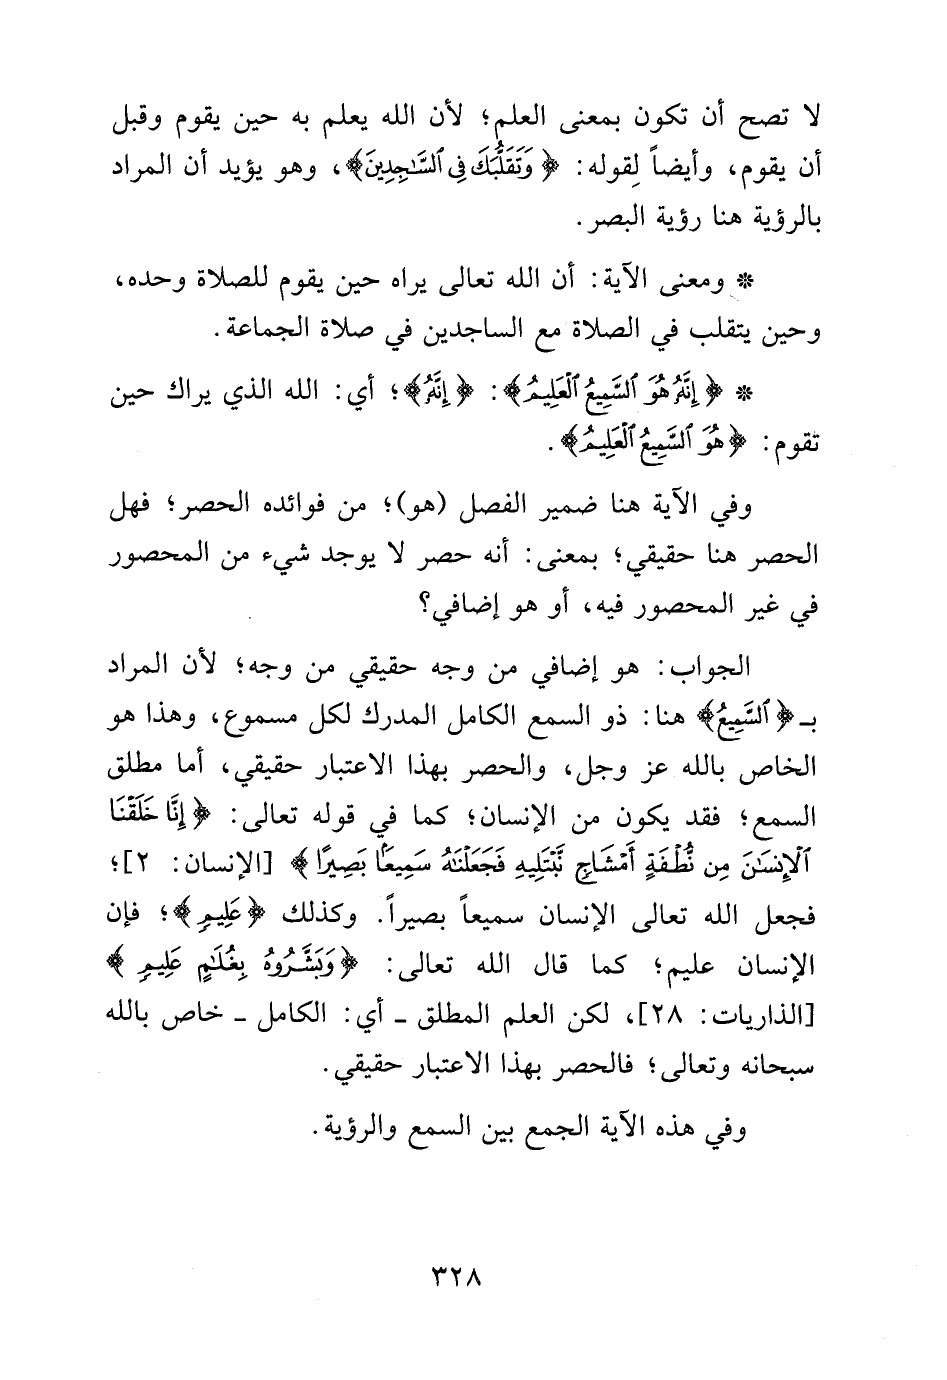 لا تصح أن تكون بمعنى العلم؛ لأن الله يعلم به حين يقوم وقبل
أن يقوم، وأيضاً لقوله: ﴿وَتَقَلُّبَكَ فِي ٱلسَّٰجِدِينَ﴾، وهو يؤيد أن المراد
بالرؤية هنا رؤية البصر.
* ومعنى الآية: أن الله تعالى يراه حين يقوم للصلاة وحده،
وحين يتقلب في الصلاة مع الساجدين في صلاة الجماعة.
* ﴿إِنَّهُۥ هُوَ ٱلسَّمِيعُ ٱلْعَلِيمُ﴾: ﴿إِنَّهُۥ﴾؛ أي: الله الذي يراك حين
تقوم: ﴿هُوَ ٱلسَّمِيعُ ٱلْعَلِيمُ﴾.
وفي الآية هنا ضمير الفصل (هو)؛ من فوائده الحصر؛ فهل
الحصر هنا حقيقي؛ بمعنى: أنه حصر لا يوجد شيء من المحصور
في غير المحصور فيه، أو هو إضافي؟
الجواب: هو إضافي من وجه حقيقي من وجه؛ لأن المراد
بـ﴿ٱلسَّمِيعُ﴾ هنا: ذو السمع الكامل المدرك لكل مسموع، وهذا هو
الخاص بالله عز وجل، والحصر بهذا الاعتبار حقيقي، أما مطلق
السمع؛ فقد يكون من الإنسان؛ كما في قوله تعالى: ﴿إِنَّا خَلَقْنَا
ٱلْإِنسَٰنَ مِن نُّطْفَةٍ أَمْشَاجٍ نَّبْتَلِيهِ فَجَعَلْنَٰهُ سَمِيعًۢا بَصِيرًا﴾ [الإنسان: ٢]؛
فجعل الله تعالى الإنسان سميعاً بصيراً. وكذلك ﴿عَلِيمٍ﴾؛ فإن
الإنسان عليم؛ كما قال الله تعالى: ﴿وَبَشَّرُوهُ بِغُلَٰمٍ عَلِيمٍ﴾
[الذاريات: ٢٨]، لكن العلم المطلق ـ أي: الكامل ـ خاص بالله
سبحانه وتعالى؛ فالحصر بهذا الاعتبار حقيقي.
وفي هذه الآية الجمع بين السمع والرؤية.
٣٢٨